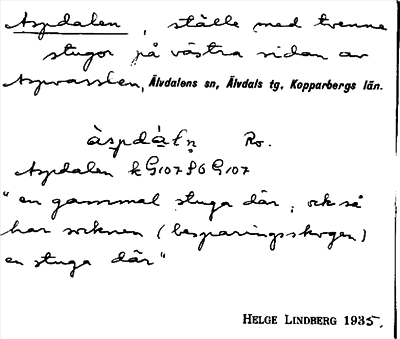 Aspdalen, ställe med trenne
stugor på västra sidan av
Aspvasslen, Älvdalens sn, Älvdals tg, Kopparbergs län.
àspdàḷn Ro.
Aspdalen k G107 Ö G107
"en gammal stuga där, också
har socknen (besparingsskogen)
en stuga där"
HELGE LINDBERG 1935.